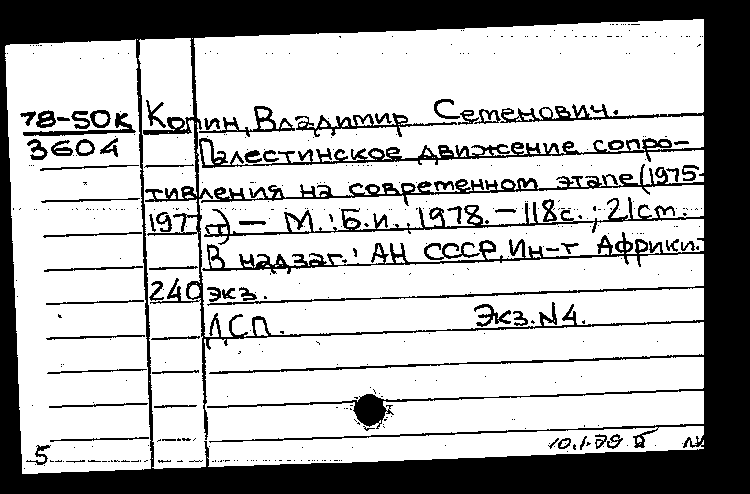 78-50к Копин, Владимир Семенович.
3604 Палестинское движение сопро-
тивления на современном этапе (1975-
1977 гг). — М.: Б.и., 1978. — 118с.; 21см.
В надзаг.: АН СССР, Ин-т Африки.
240 экз.
ДСП. Экз. N4.
5 10.1.79